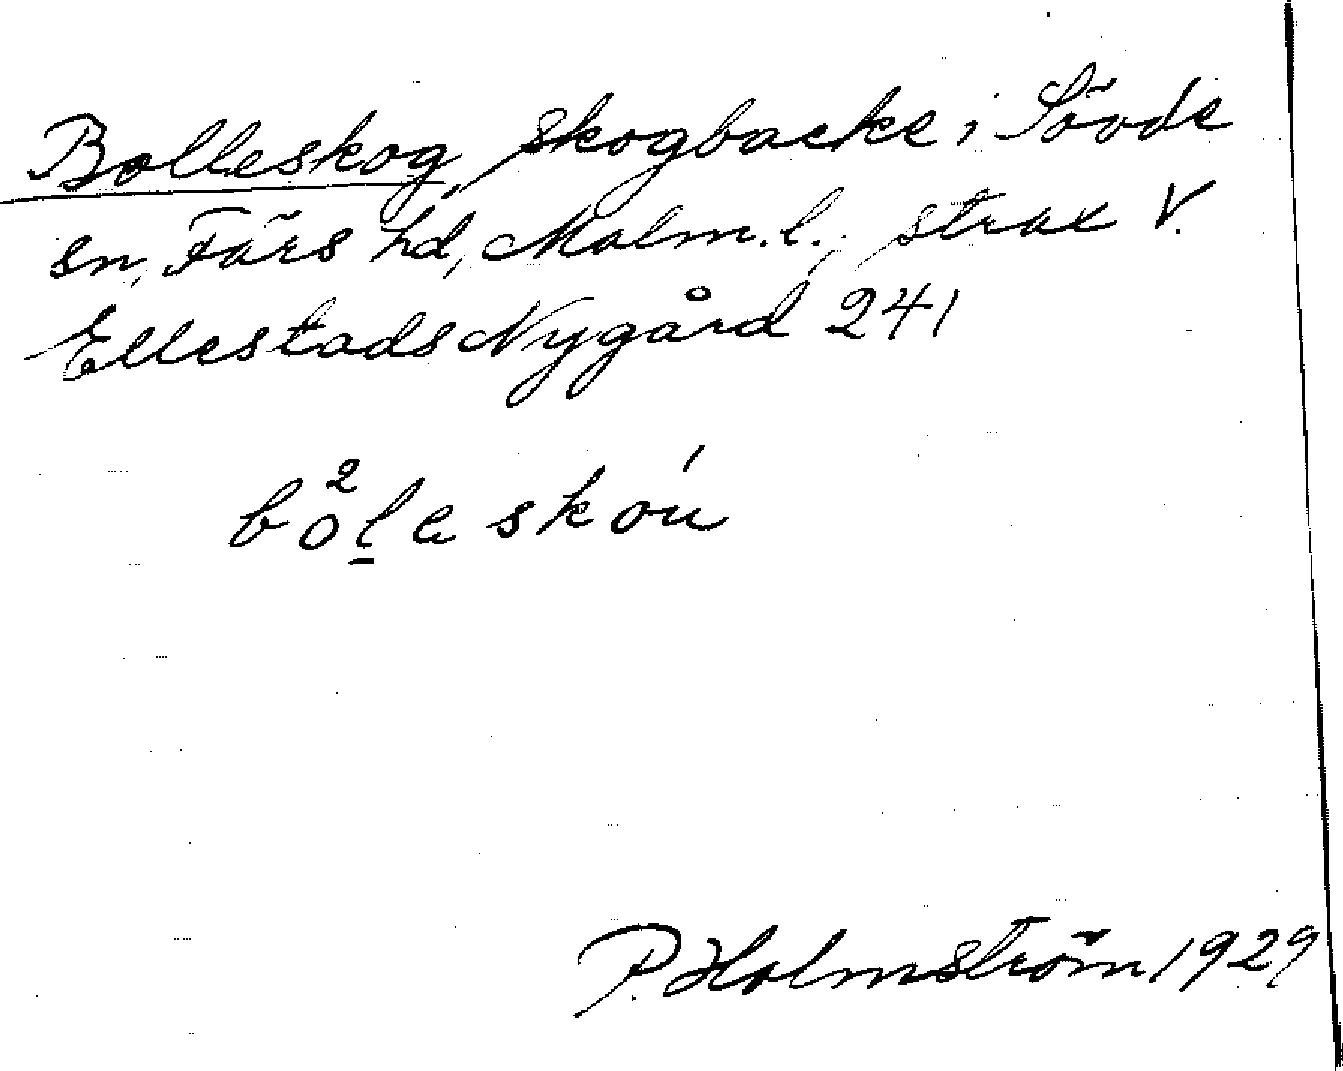 Bolleskog, skogbacke i Sövde
sn, Färs hd, Malm. l., strax V.
Ellestads Nygård 241
bo²l̲a skóu
P. Holmström 1929